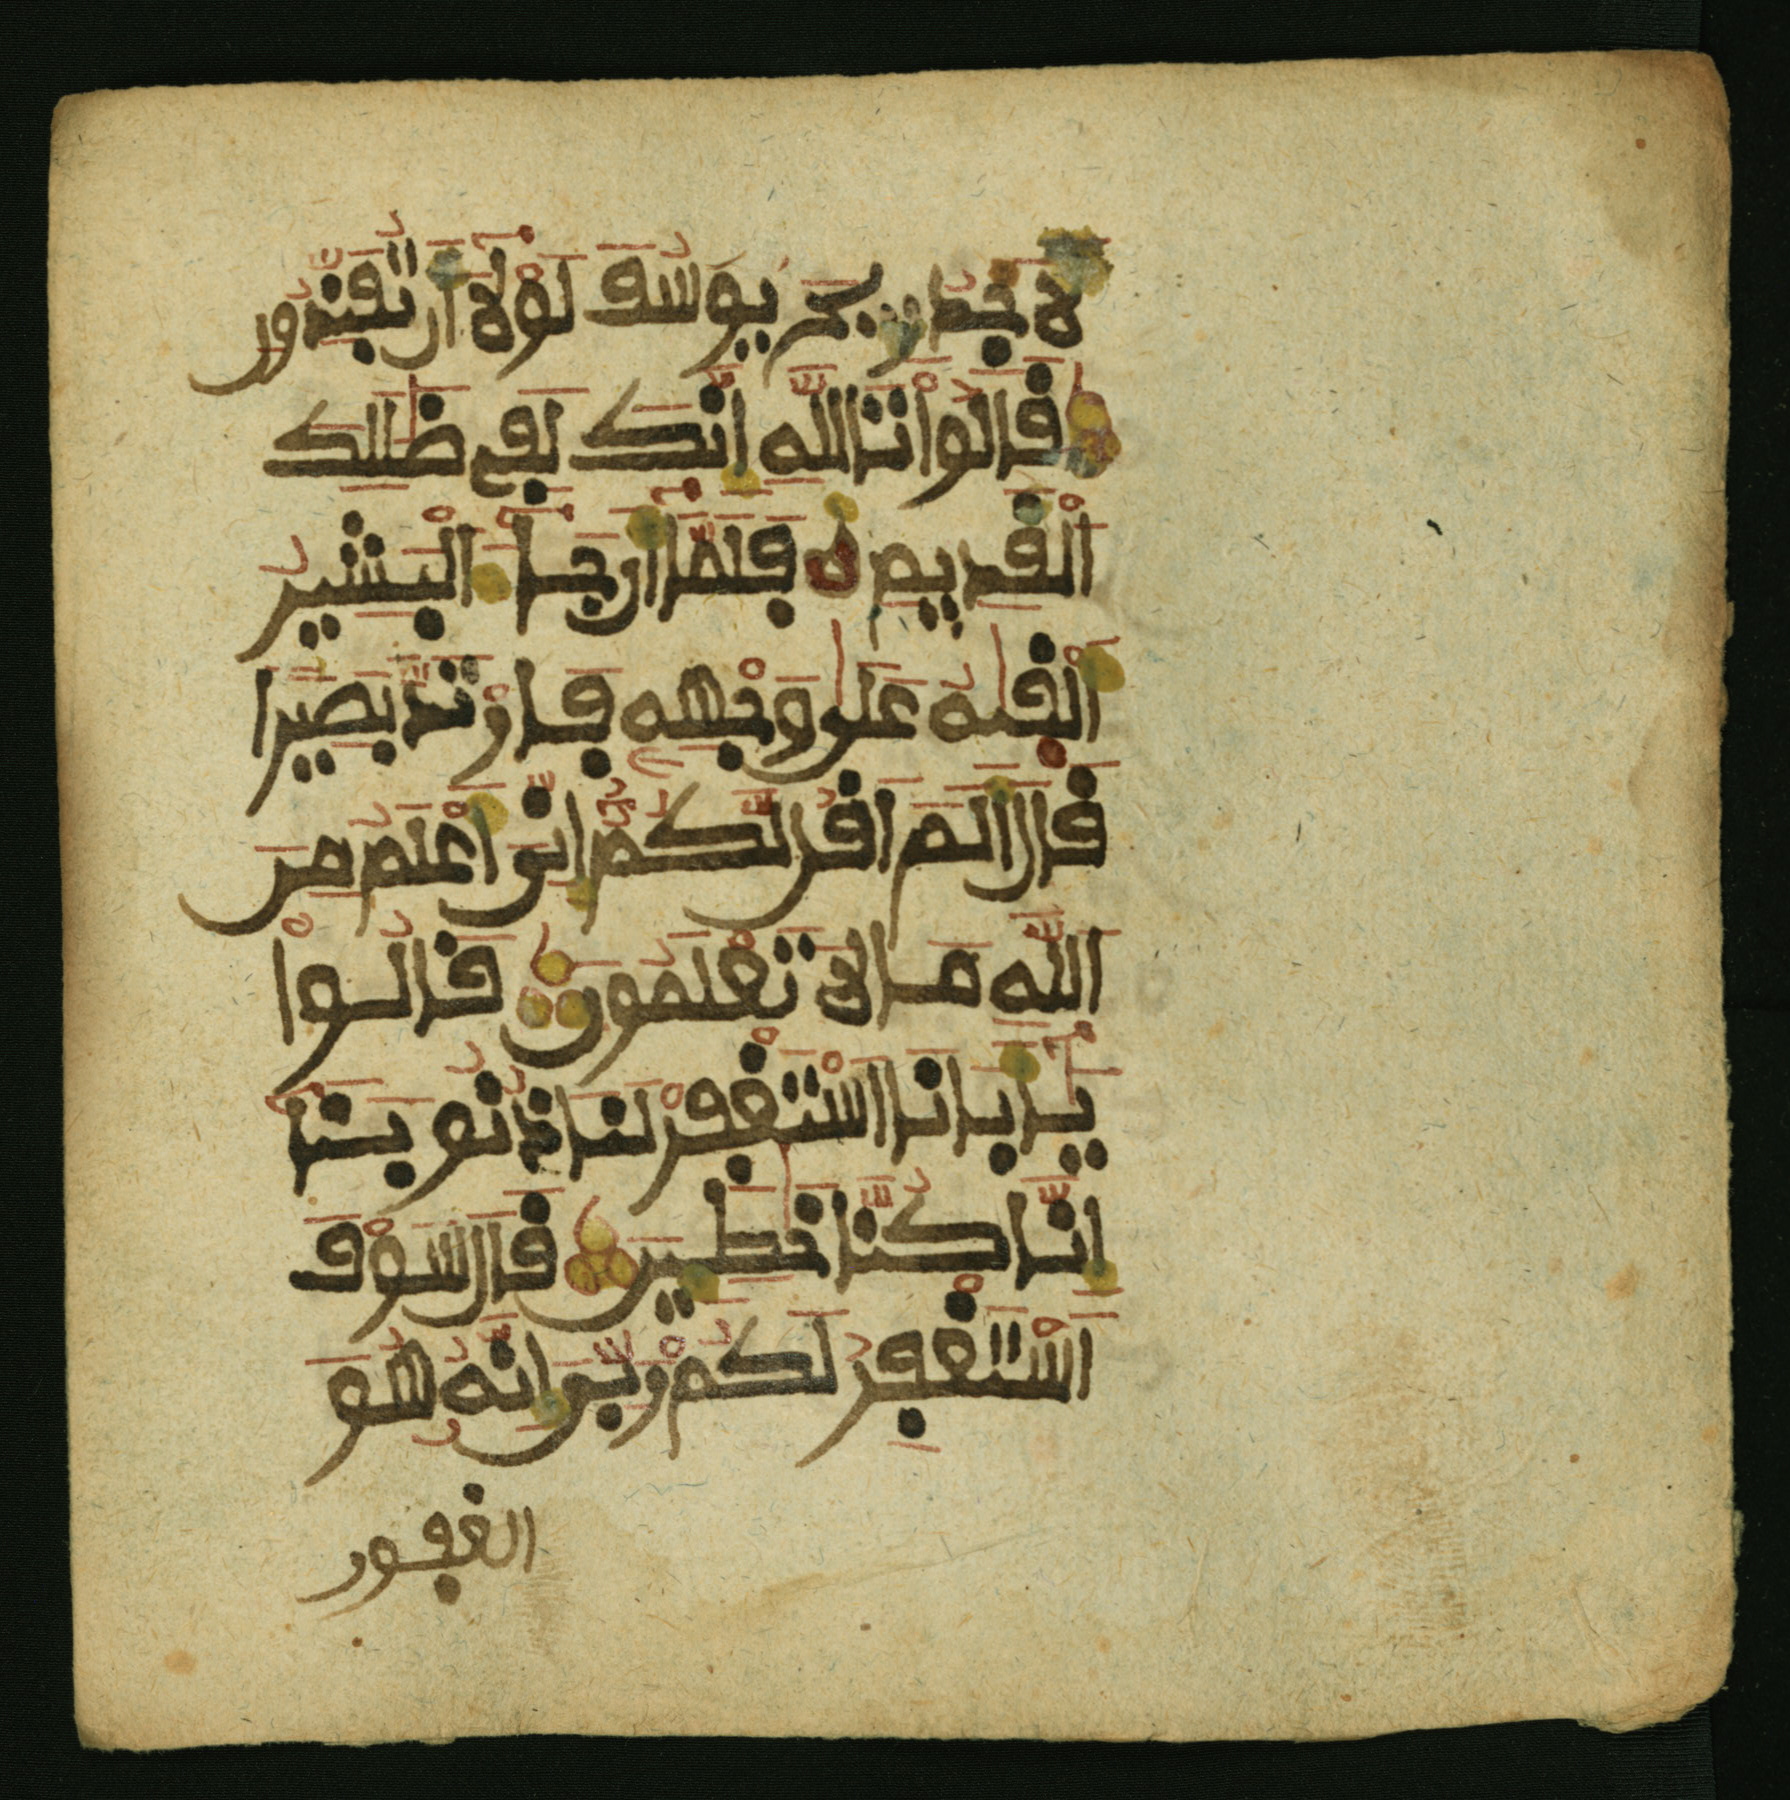 لأجد ريح يوسف لولا أن تفندون
قالوا تالله إنك لفى ضللك
القديم فلما أن جا البشير
ألقيه على وجهه فارتد بصيرا
قال ألم أقل لكم إنى أعلم من
الله ما لا تعلمون قالوا
يابانا استغفر لنا ذنوبنا
إنا كنا خطين قال سوف
أستغفر لكم ربى إنه هو
الغفور